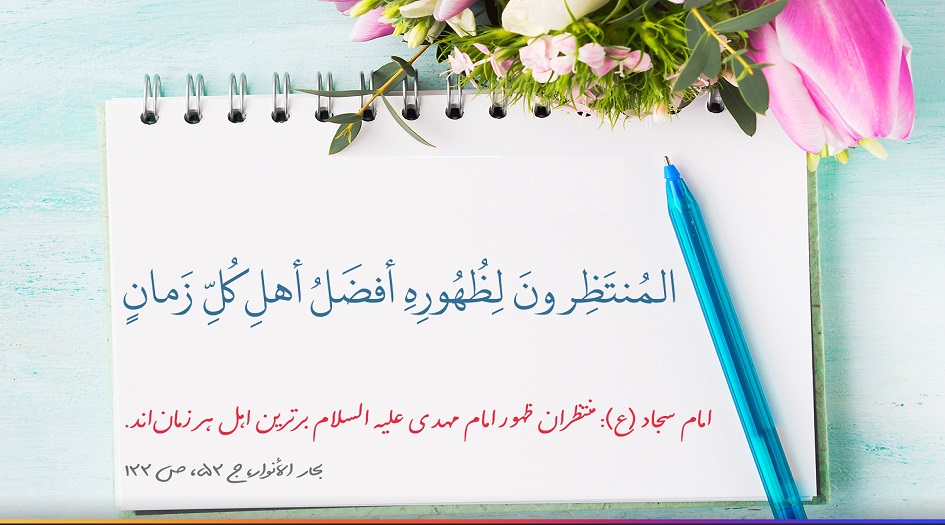 المُنتَظِرونَ لِظُهُورِهِ أفضَلُ أهلِ كُلِّ زَمانٍ
امام سجاد (ع): منتظران ظهور امام مهدی علیه السلام برترین اهل هر زمان‌اند.
بحار الأنوار، ج ۵۲، ص ۱۲۲